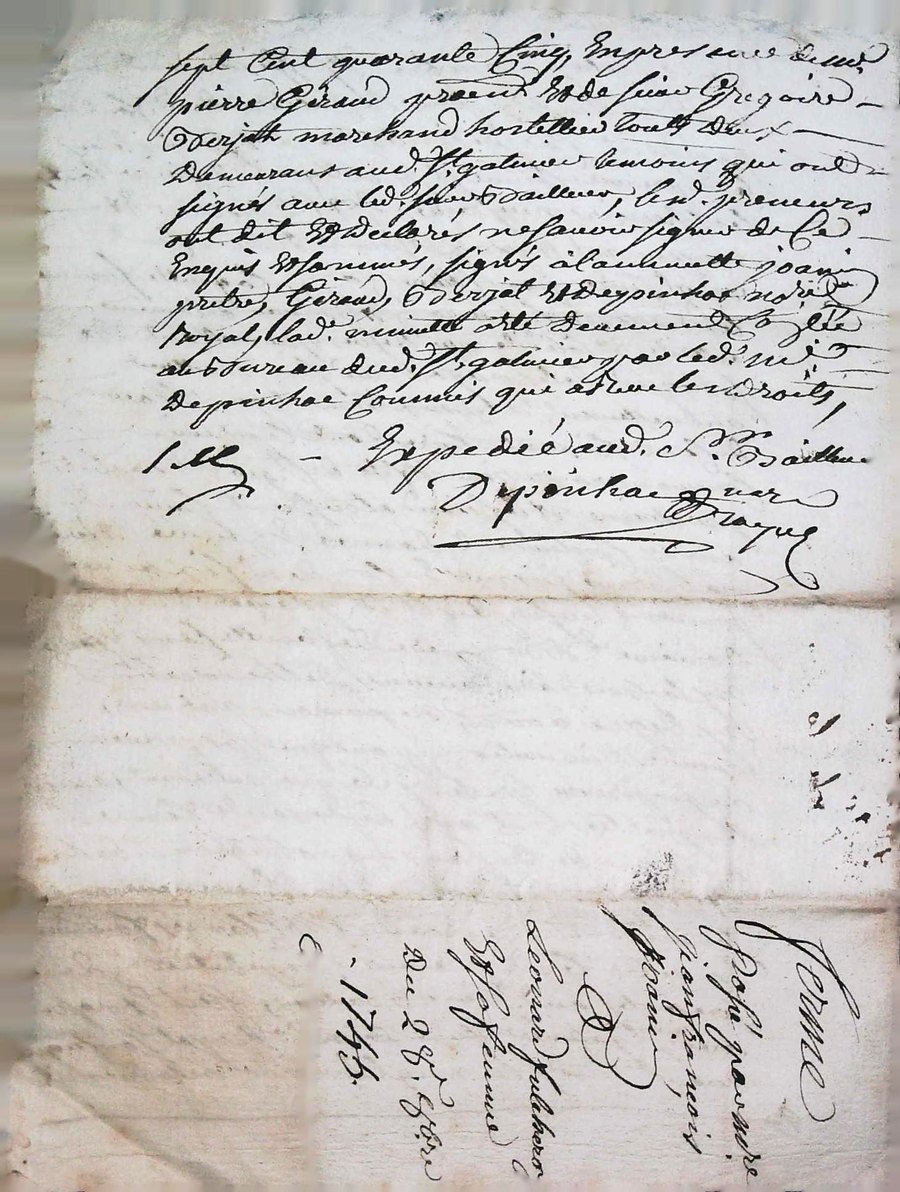 sept Cent quarante Cinq, En presence de mre
pierre Géraud praén Et de sieur Gregoire
Verjat marchand hostellier touts Deux
Demeurans aud. St. galmier temoins qui ont
signés avec led. sieur Bailleur, lesd. preneurs
ont dit Et declarés ne savoir signer de Ce
Enquis Et sommés, signés à la minutte joanin
pretre, Géraud, Verjat Et Depinhac no.re
Royal, lad. minutte a eté Deuement Conlée
au Bureau dud. St. galmier par led. me.
Depinhac Commis qui a receu les Droits,
Expedié aud. Sr. Bailleur
Depinhac
ferme
Passé par mre
jean françois
joanin
A
Leonard fulchero
Et sa femme
Du 28e. 9bre
1745.